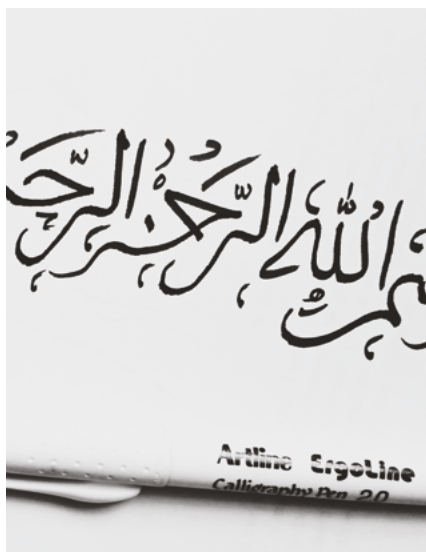 سمِ اللّٰهِ الرَّحْمٰنِ الرَّحـ
Artline ErgoLine
Calligraphy Pen 2.0